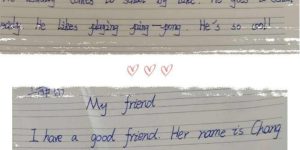 comes to school by bike. He goes
early. He likes playing ping-pong. He's so cool!
My friend
I have a good friend. Her name is Chang